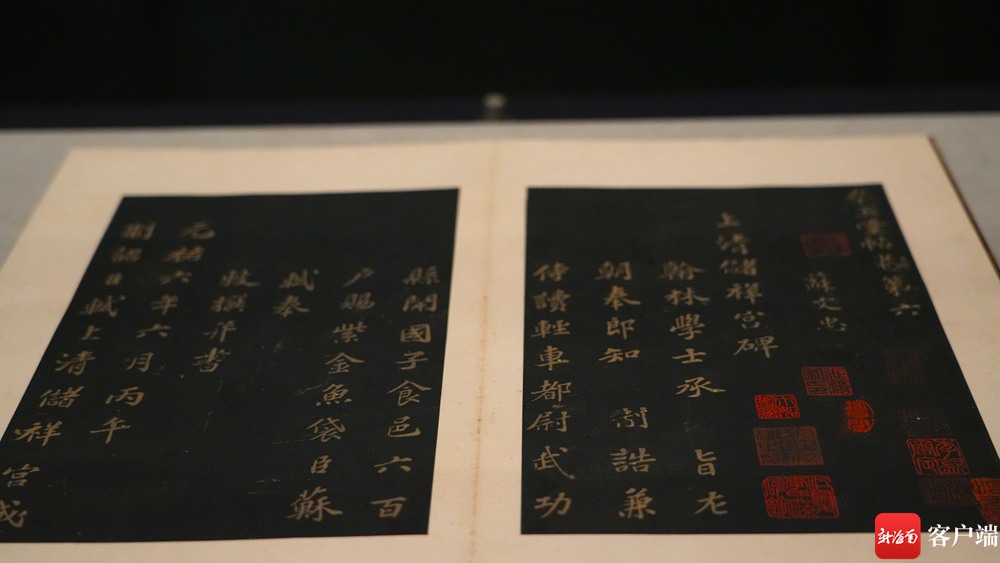 第六
蘇文忠
上清儲祥宮碑
翰林學士承旨左
朝奉郎知制誥兼
侍讀輕車都尉武功
縣開國子食邑六百
戶賜紫金魚袋臣蘇
軾奉
敕撰并書
元祐六年六月丙午
制詔臣軾上清儲祥宮成
新海南 客户端